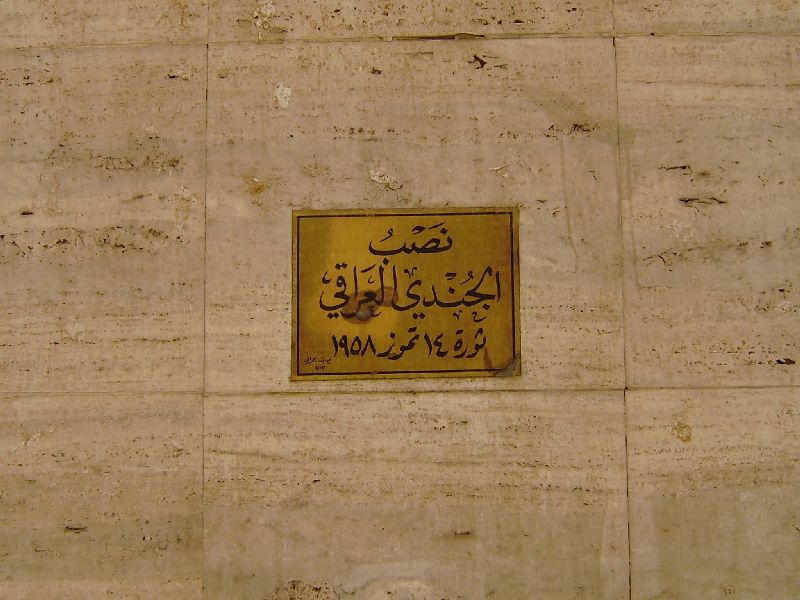 نَصْبُ
الجُنْدي العَراقي
ثورة ١٤ تموز ١٩٥٨